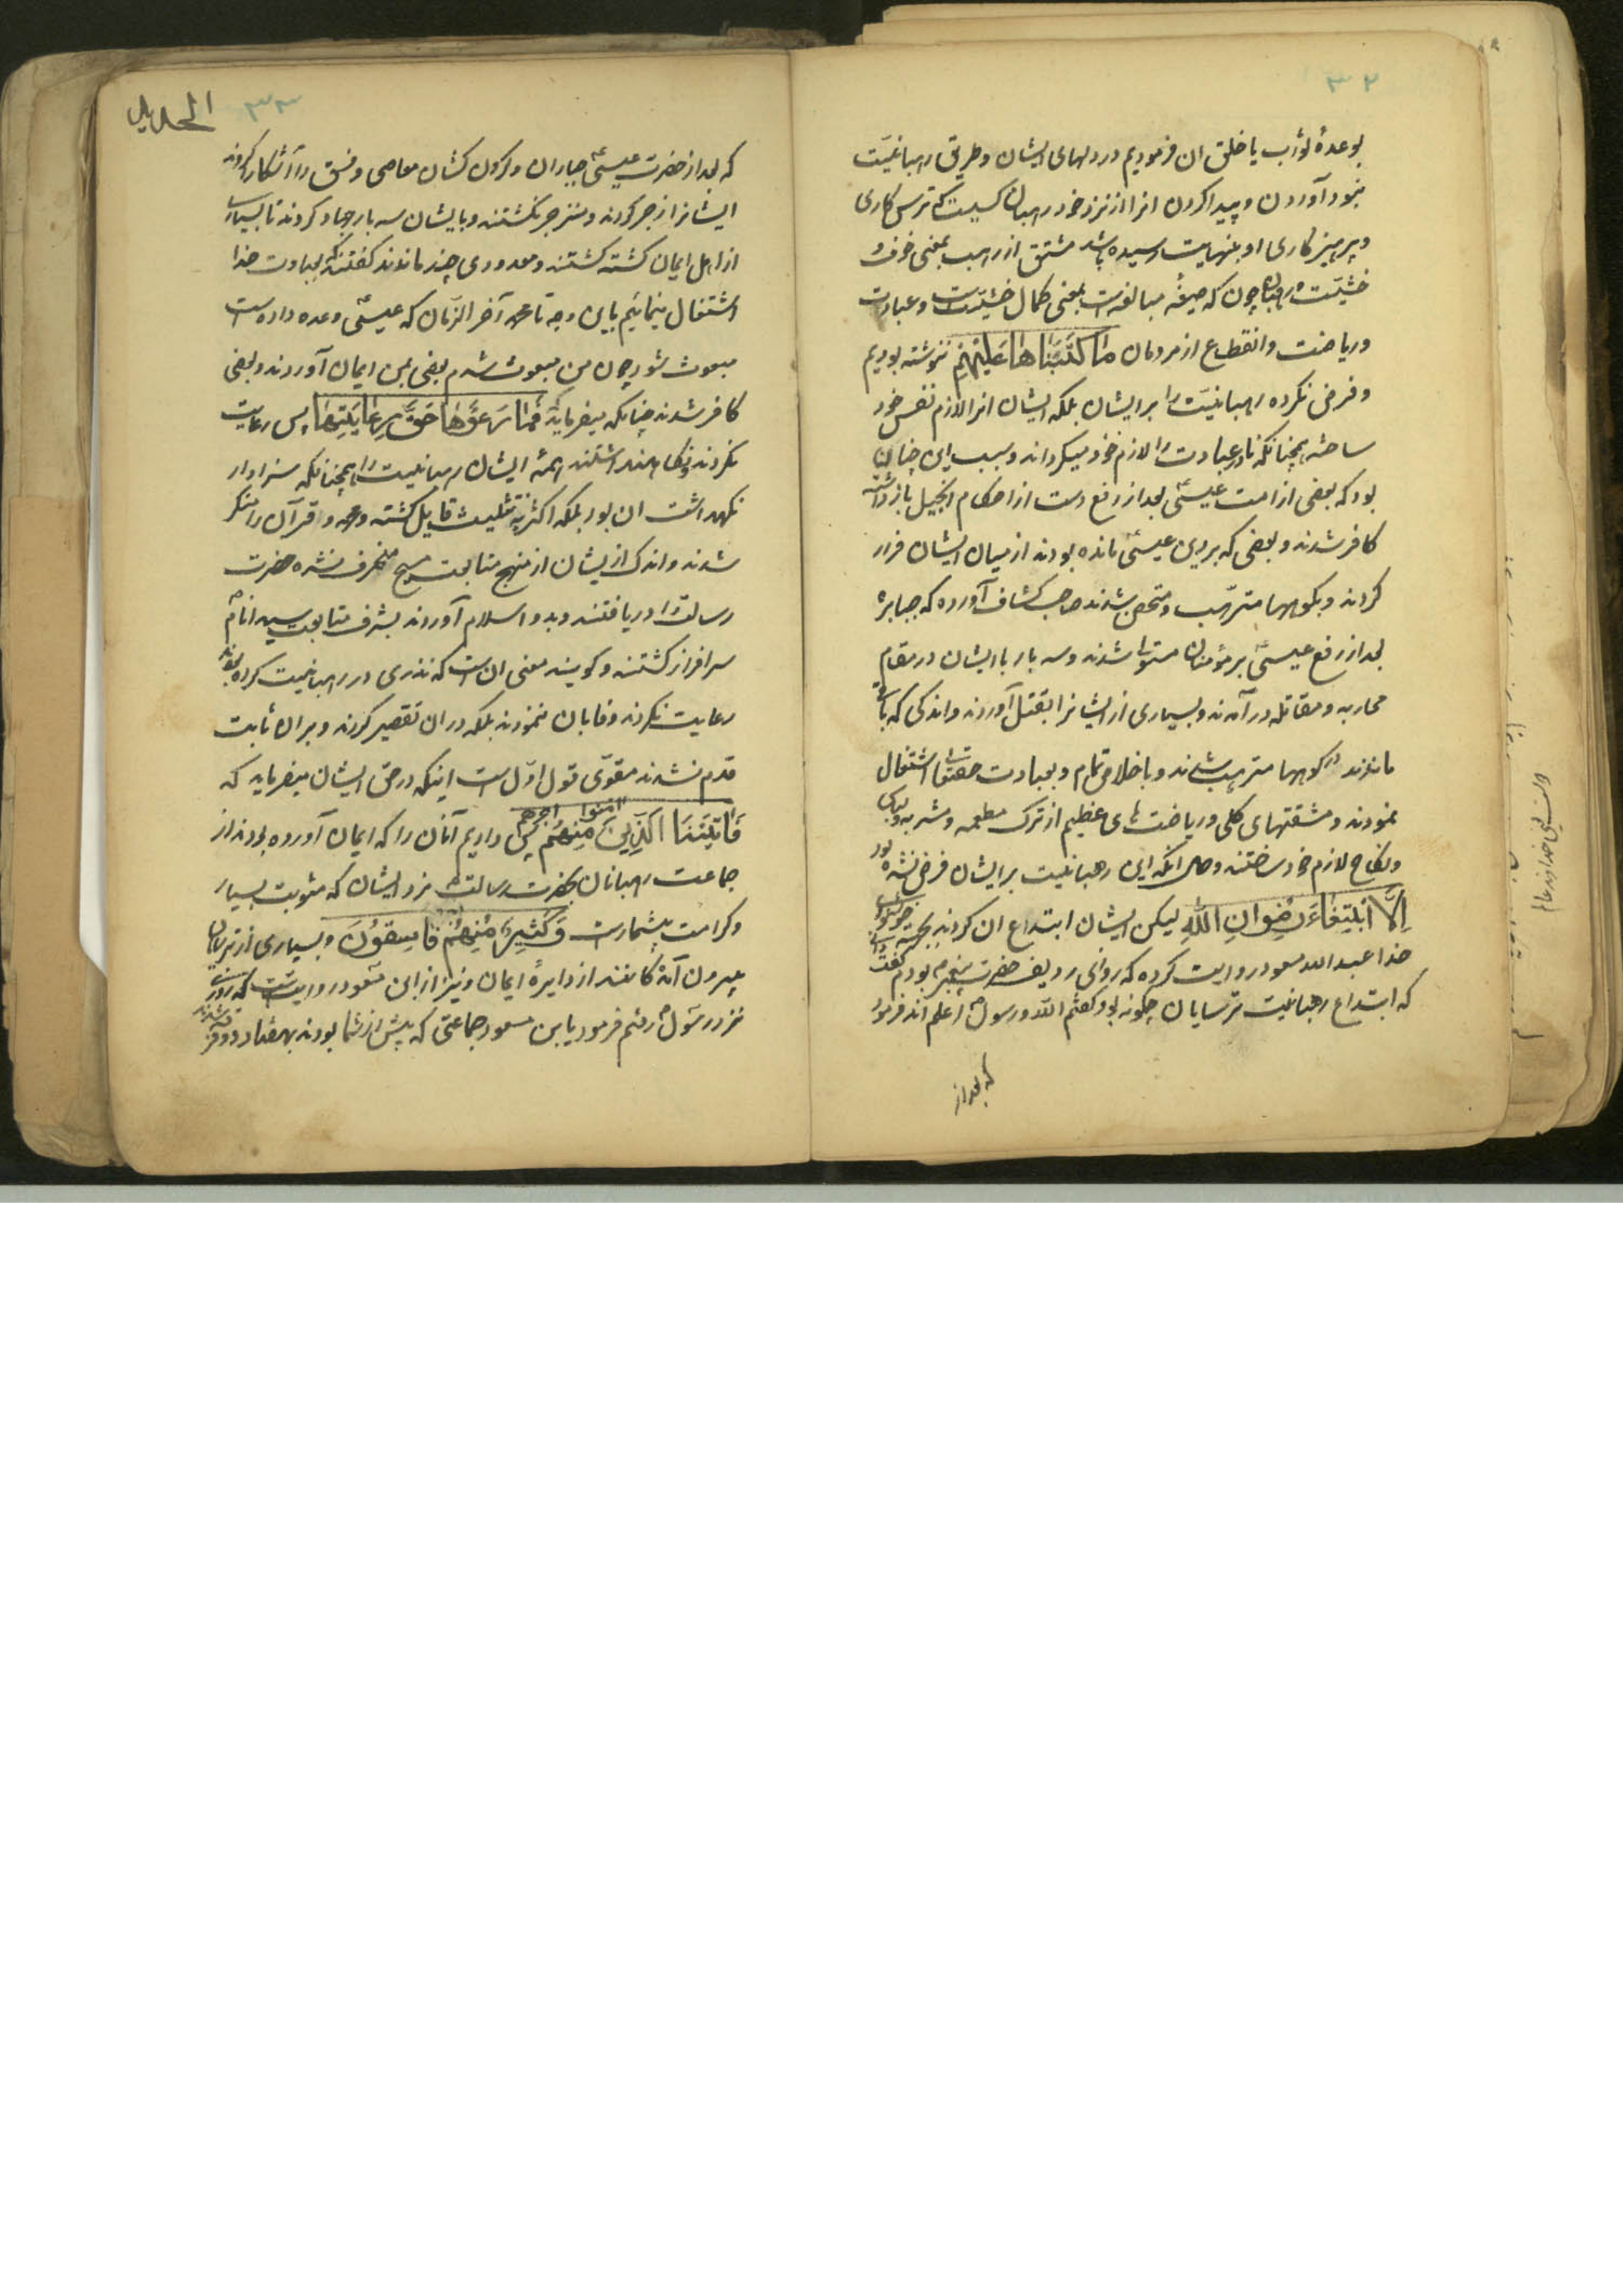 ۳۲
بوعدهٔ ثواب یا خلق ان فرمودیم در دلهای ایشان و طریق رهبانیّت
بخود آوردن و پیدا کردن انرا از نزد خود رهبان کسیست که ترس کاری
و پرهیز کاری او بنهایت رسیده باشد مشتق از رهب بمعنی خوف و
خشیّت و رهبان چون که صیغهٔ مبالغه است بمعنی کمال خشیّت است و عبادت
و ریاضت و انقطاع از مردمان مٰا كَتَبْنٰاهٰا عَلَيْهِمْ ننوشته بودیم
و فرض نکرده رهبانیّت را بر ایشان بلکه ایشان انرا لازم نفس خود
ساخته همچنانکه نادر عبادت را لازم خود میکرداند و سبب این چنان
بود که بعضی از امت عیسیٰ بعد از رفع دست از احکام انجیل باز داشته
کافر شدند و بعضی که بر دین عیسیٰ مانده بودند از میان ایشان فرار
کردند و بکوهها مترهّب و متحصن شدند صاحب کشاف آورده که جبابره
بعد از رفع عیسیٰ بر مؤمنان مستولی شدند و سه بار با ایشان در مقام
محاربه و مقاتله در آمدند و بسیاری از ایشانرا بقتل آوردند و اندکی که باقی
ماندند در کوهها مترهب شدند و با خلاص تمام و بعبادت حقتعالی اشتغال
نمودند و مشقتهای کلی و ریاضت های عظیم از ترک مطعمه و مشربه و لباس
و نکاح لازم خود ساختند و حال انکه این رهبانیت بر ایشان فرض نشده بود
اِلَّا ابْتِغٰاءَ رِضْوانِ اللّٰهِ لیکن ایشان ابتداع ان کردند بجهة خوشنودی
خدا عبد الله مسعود روایت کرده که روزی ردیف حضرت پیغمبر بودم گفت
که ابتداع رهبانیت ترسایان چگونه بود گفتم اللّه و رسوله اعلم اند فرمود
که بعد از
الحدید
۳۳
که بعد از حضرت عیسیٰ جباران و کردن کشان معاصی و فسق را آشکار کردند
ایشانرا زجر کردند و منزجر نکشتند و با ایشان سه بار جهاد کردند تا بسیاری
از اهل ایمان کشته کشتند و معدودی چند ماندند کفتند که بعبادت خدا
اشتغال مینمائیم باین وجه تا محمد آخر الزّمان که عیسیٰ وعده داده است
مبعوث شود چون من مبعوث شدم بعضی بمن ایمان آوردند و بعضی
کافر شدند چنانکه میفرماید که فَمٰا رَعَوْهٰا حَقَّ رِعٰايَتِهٰا پس رعایت
نکردند و نکاه نداشتند همهٔ ایشان رهبانیت را همچنانکه سزاوار
نکهداشت ان بود بلکه اکثر به تثلیث قایل کشته و محمد و قرآن را منکر
شدند و اندک از ایشان از منهج متابعت مسیح منحرف نشده حضرت
رسالت را دریافتند و بدو اسلام آوردند بشرف متابعت سید انام
سرافراز کشتند و کویند معنی ان است که نذری در رهبانیت کرده بودند
رعایت نکردند و وفا بان ننمودند بلکه در ان تقصیر کردند و بر ان ثابت
قدم نشدند مقوّی قول اوّل است اینکه در حق ایشان میفرماید که
فَاٰتَيْنَا الَّذِينَ اٰمنوا مِنْهُمْ اجرهم پس دادیم آنان را که ایمان آورده بودند از
جماعت رهبانان بحضرت رسالت مزد ایشان که مثوبت بسیار
و کرامت بیشمار است وَ كَثِيرٌ مِنْهُمْ فٰاسِقُونَ و بسیاری از ترسایان
بیرون آمدکانند از دایرهٔ ایمان و نیز از ابن مسعود روایت است که روزی
نزد رسول رفتم فرمود یا ابن مسعود جماعتی که پیش از شما بودند بهفتاد و دو فرقه شدند